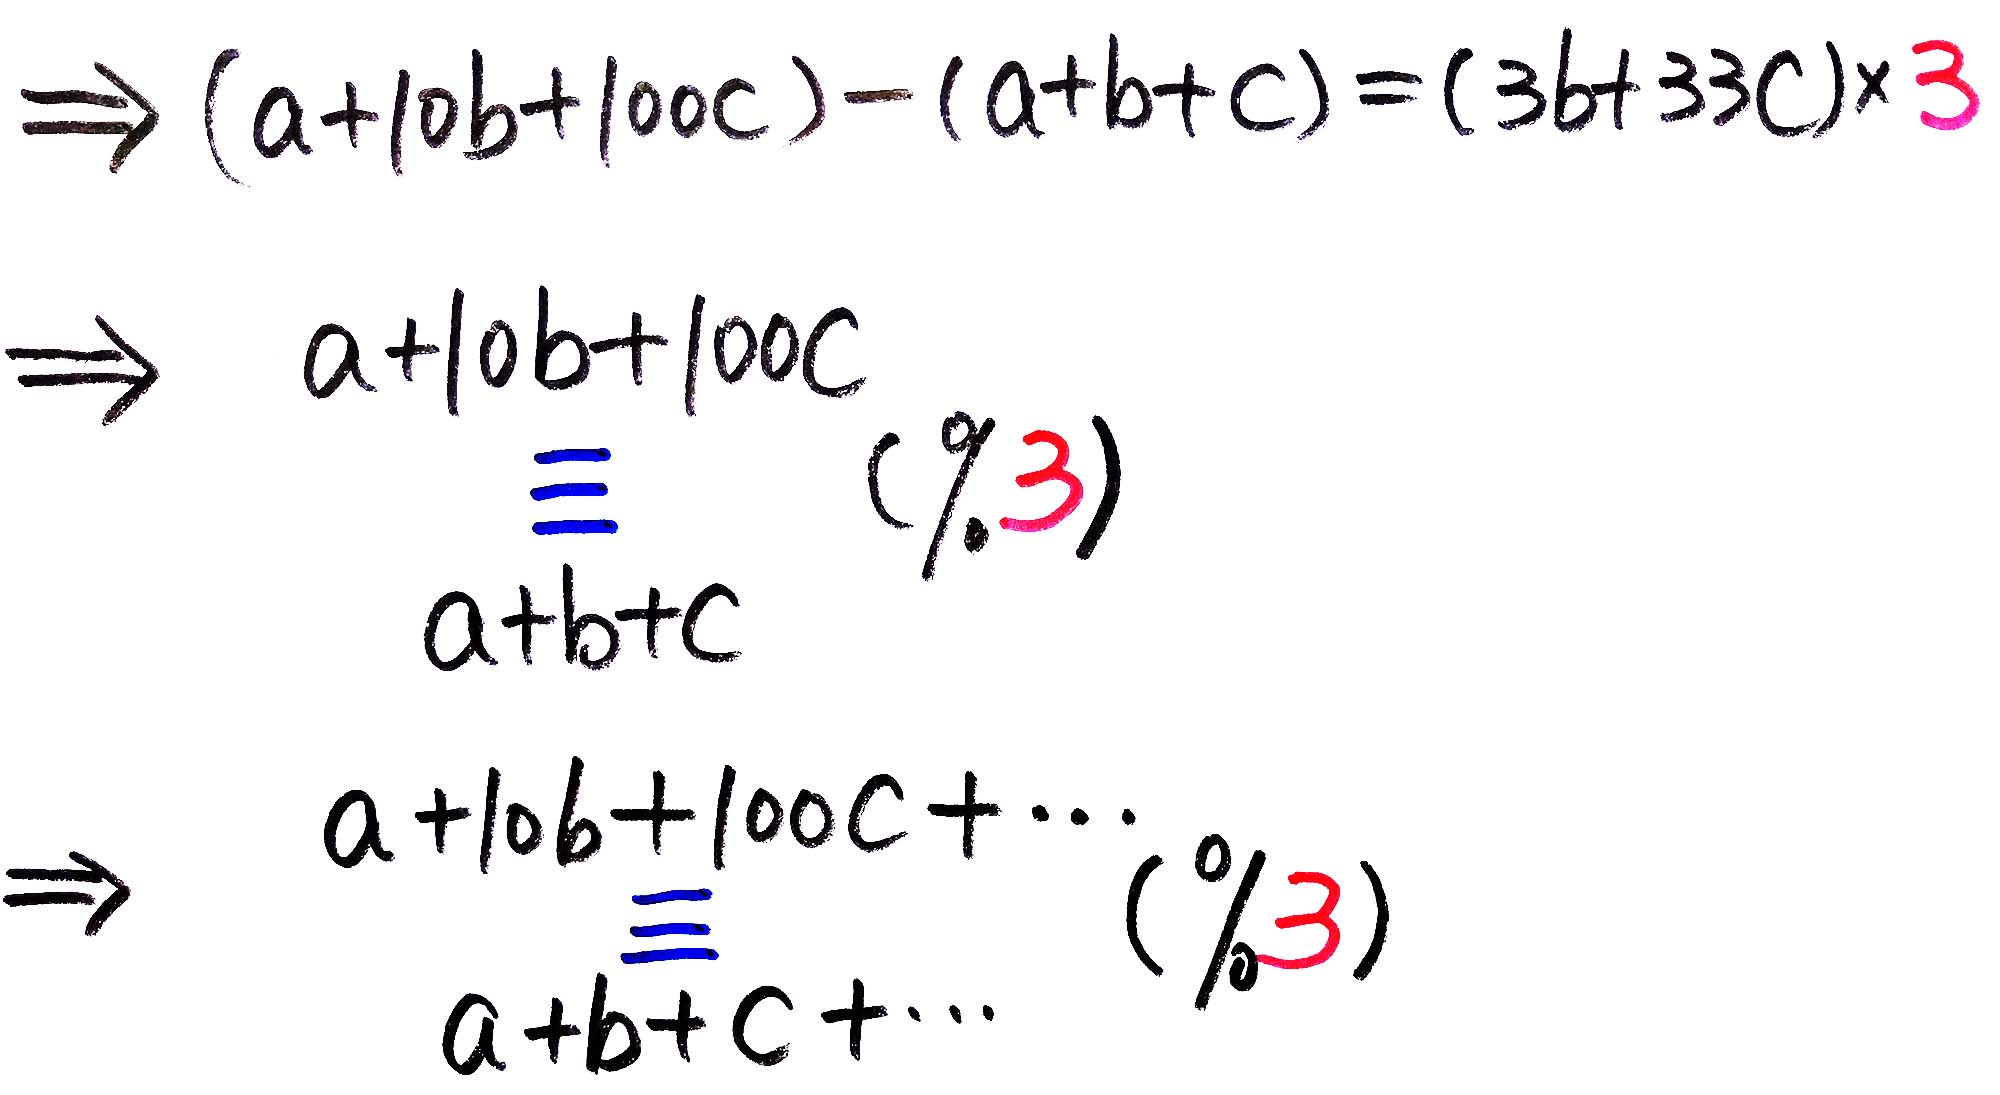 ⇒ (a+10b+100c)-(a+b+c)=(3b+33c)×3
⇒ a+10b+100c
≡ (%3)
a+b+c
⇒ a+10b+100c+⋯
≡ (%3)
a+b+c+⋯